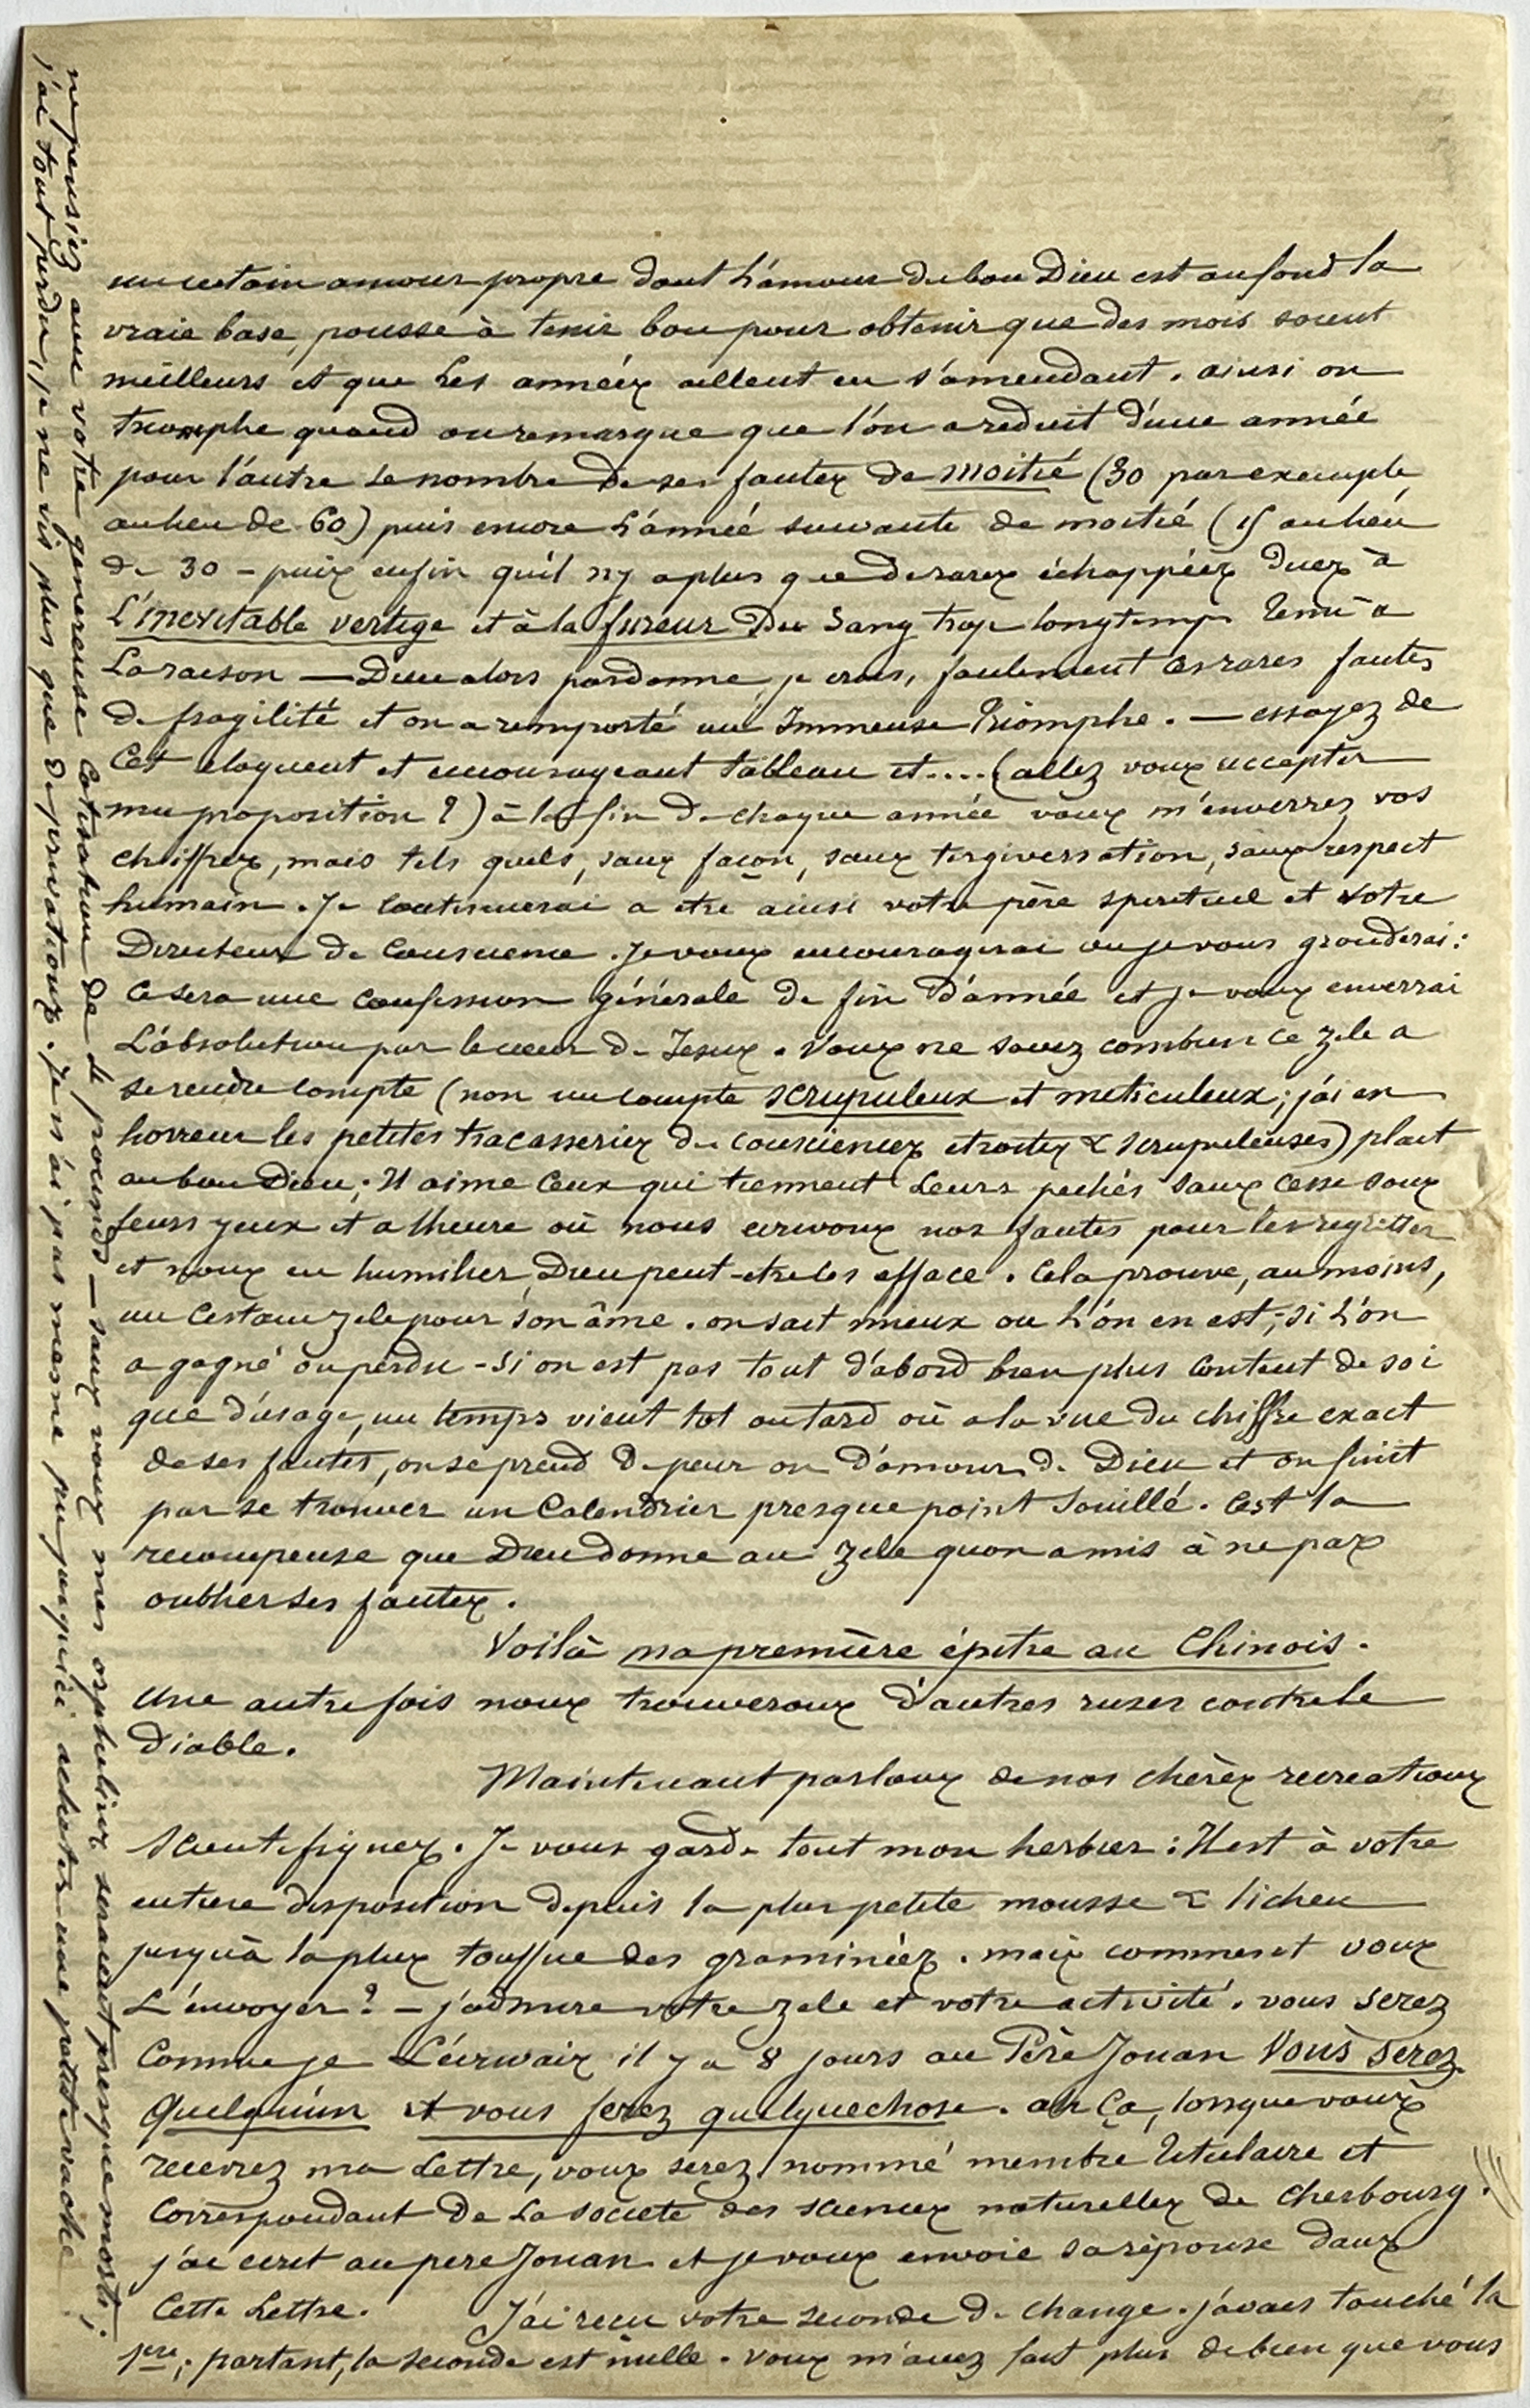 un certain amour propre dont l'amour du bon Dieu est au fond la
vraie base, pousse à tenir bon pour obtenir que des mois soient
meilleurs et que les années aillent en s'amendant. ainsi on
triomphe quand on remarque que l'on a reduit d'une année
pour l'autre le nombre de ses fautes de moitié (30 par exemple
au lieu de 60) puis encore l'année suivante de moitié (15 au lieu
de 30 - puis enfin qu'il n'y a plus que de rares échappées dues à
L'inevitable vertige et à la fureur du sang trop longtemps tenu à
La raison — Dieu alors pardonne, je crois, facilement ces rares fautes
de fragilité et on a remporté un Immense Triomphe. — essayez de
Cet eloquent et encourageant tableau et.... (allez vous accepter
ma proposition?) à la fin de chaque année vous m'enverrez vos
chiffres, mais tels quels, sans façon, sans tergiversation, sans respect
humain. Je continuerai a etre ainsi votre père spirituel et votre
Directeur de Conscience. Je vous encouragerai ou je vous gronderai:
Ce sera une confession générale de fin d'année et je vous enverrai
L'absolution par le coeur de Jesus. Vous ne savez combien ce zele a
se rendre compte (non un compte scrupuleux et meticuleux; j'ai en
horreur les petites tracasseries de consciences etroites & scrupuleuses) plait
au bon Dieu; Il aime ceux qui tiennent leurs pechés sans cesse sous
leurs yeux et a lheure où nous ecrivons nos fautes pour les regretter
et nous en humilier, Dieu peut-etre les efface. Cela prouve, au moins,
un certain zele pour son âme. on sait mieux ou l'on en est; si l'on
a gagné ou perdu - si on est pas tout d'abord bien plus content de soi
que d'usage, un temps vient tot ou tard où a la vue du chiffre exact
de ses fautes, on se prend de peur ou d'amour de Dieu et on finit
par se trouver un Calendrier presque point souillé. Cest la
recompense que Dieu donne au zele quon a mis à ne pas
oublier ses fautes.
Voilà ma première épitre au Chinois.
Une autre fois nous trouverons d'autres ruses contre le
Diable.
Maintenant parlons de nos chères recreations
scientifiques. Je vous garde tout mon herbier: Il est à votre
entiere disposition depuis la plus petite mousse & lichen
jusqu'à la plus touffue des graminées. mais comment vous
L'envoyer? - j'admire votre zele et votre activité. vous serez
Comme je L'écrivais il y a 8 jours au Père Jouan Vous serez
Quelqu'un et vous ferez quelquechose. ah ça, lorsque vous
recevrez ma Lettre, vous serez nommé membre titulaire et
Correspondant de La societé des sciences naturelles de Cherbourg.
j'ai ecrit au pere Jouan et je vous envoie sa réponse dans
Cette Lettre. J'ai recu votre seconde de change. j'avais touché la
1ere; partant, la seconde est nulle. vous m'avez fait plus de bien que vous
ne pensiez avec votre genereuse Cotisation de pounds — sans vous mes orphelins seraient presque morts;
j'ai tout perdu, je ne vis plus que de privations. Je n'ai pas mesme pu jusqu'ici acheter une petite vache